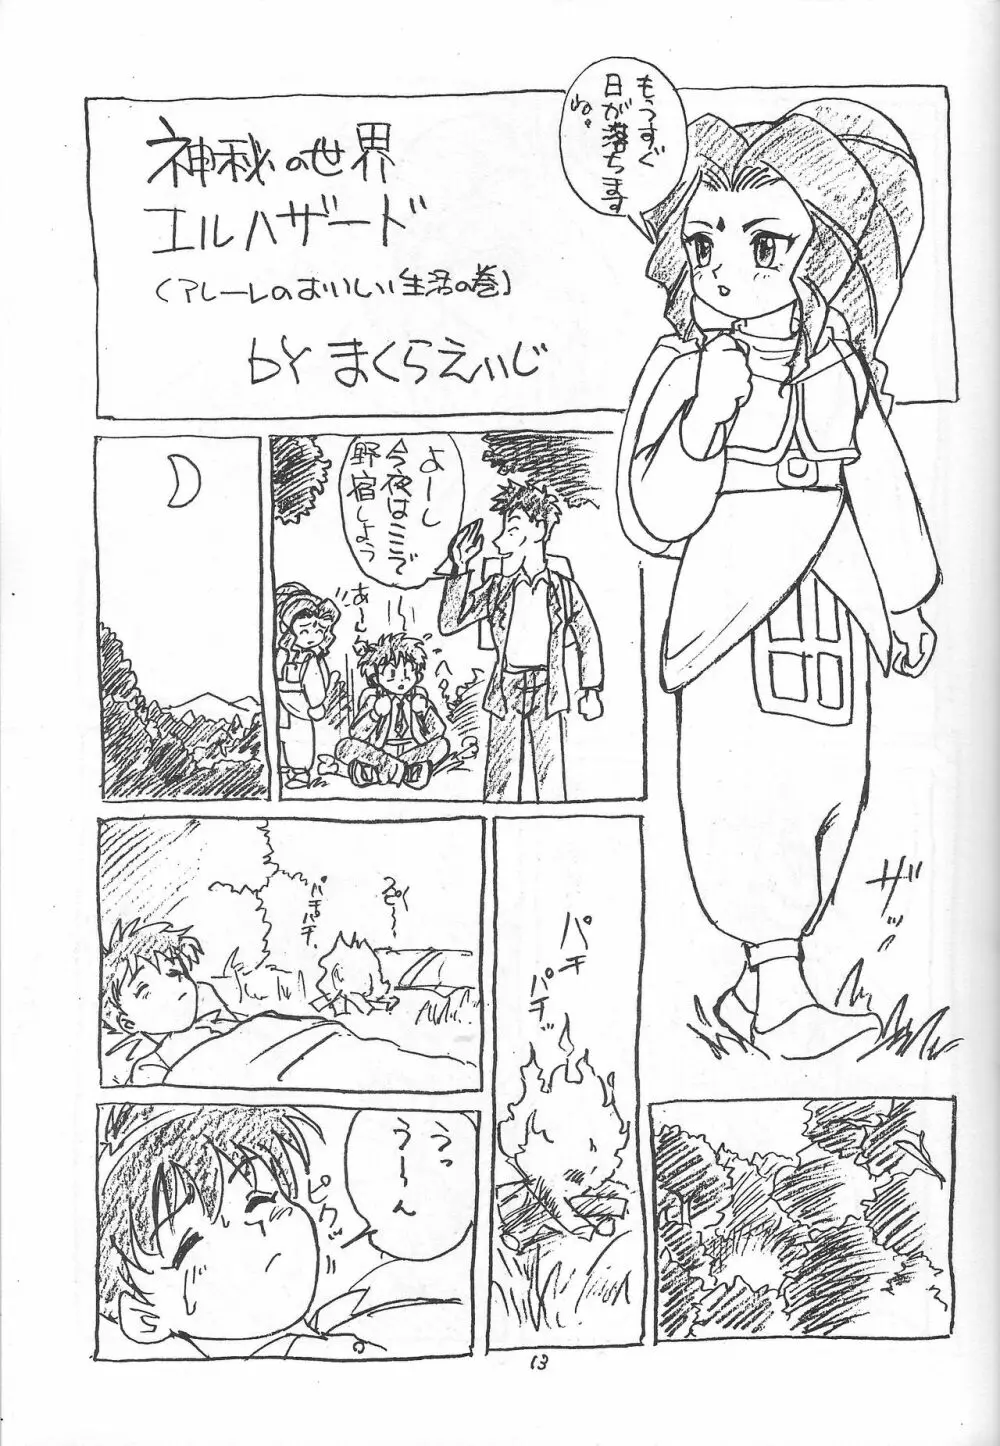 神秘の世界
エルハザード
(アレーレのおいしい生活の巻)
by まくらえいじ
もうすぐ
日が落ちます
ね。
よーし
今夜はここで
野宿しよう
あーん
へへ
ザッ
パチパチ
スピ〜
パチ
パチ
うっ
うーん
ピクッ
13